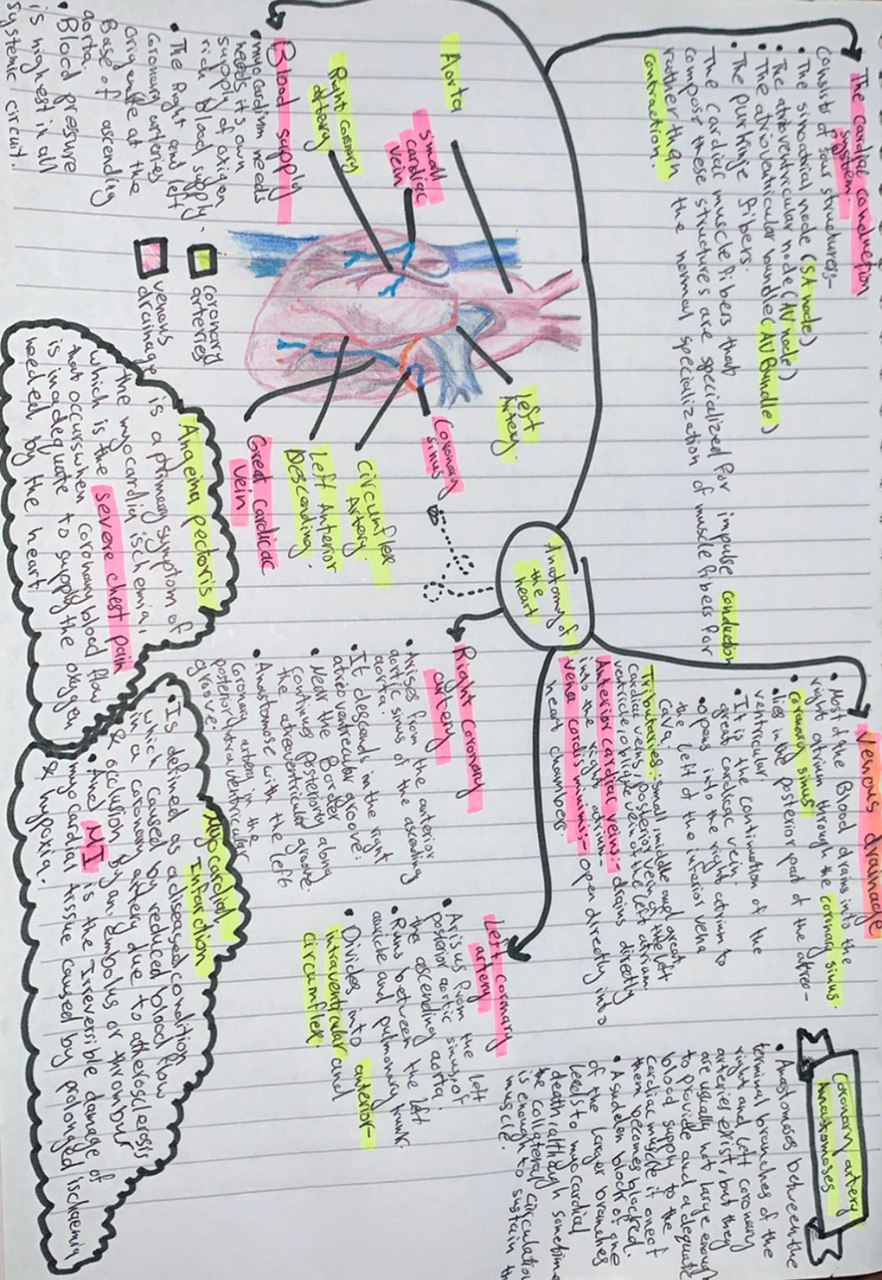 The cardiac conduction
system:-
Consists of four structures:-
• The sinoatrial node (SA node)
• The atrioventricular node (AV node)
• The atrioventricular bundle (AV Bundle)
• The purkinje fibers.
The cardiac muscle fibers that
compose these structures are specialized for impulse conduction
rather than the normal specialization of muscle fibers for
contraction
Blood supply
• myocardium needs
needs it's own
supply of oxygen
rich blood supply.
• The Right and left
coronary arteries
originate at the
Base of ascending
aorta.
• Blood pressure
is highest in all
systemic circuit.
Aorta
small
cardiac
vein
Right coronary
artery
left
Artery
Coronary
sinus
Circumflex
Artery
Left Anterior
Descending.
Great cardiac
vein
coronary
arteries
venous
drainage
Anatomy of
the
heart
Venous drainage
• Most of the Blood drains into the
right atrium through the coronary sinus.
coronary sinus
• lies in the posterior part of the atreo-
ventricular
• It is the continuation of the
great cardiac vein.
• opens into the right atrium to
the left of the inferior vena
cava.
Tributeries: small middle and great
cardiac veins, posterior vein of the left
ventricle, oblique vein of the left atrium
Anterior cardiac veins:- drains directly
into the right atrium.
vena cordis minimis:- open directly into
heart chambers
Right coronary
artery
• Arises from the anterior
aortic sinus of the ascending
aorta.
• It descends in the right
atrioventricular groove.
• Near the Border
continues posteriorly along
the atrioventricular groove.
• Anastomose with the left
coronary artery in the
posterior
groove.
Left coronary
artery
• Arisus from the left
posterior aortic sinus of
the ascending aorta.
• Runs between the left
auricle and pulmonary trunk.
• Divides into anterior-
intraventricular and
circumflex.
Coronary artery
Anastomoses
• Anastomoses between the
terminal branches of the
right and left coronary
arteries exist, but they
are usually not large enough
to provide and adequate
blood supply to the
cardiac muscle if one of
them becomes blocked.
• A sudden block of one
of the larger branches
leads to myocardial
death, although sometime
the collateral circulation
is enough to sustain th
muscle.
Angeina pectoris
is a primary symptom of
the myocardia ischemia,
which is the severe chest pain
that occurs when coronary blood flow
is inadequate to supply the oxygen
needed by the heart
Myocardial
Infarction
• Is defined as a diseased condition
which caused by reduced blood flow
in a coronary artery due to atherosclerosis
& occlusion by an embolus or thrombus
• the MI is the Irreversible damage of
myocardial tissue caused by prolonged ischaemia
& hypoxia.